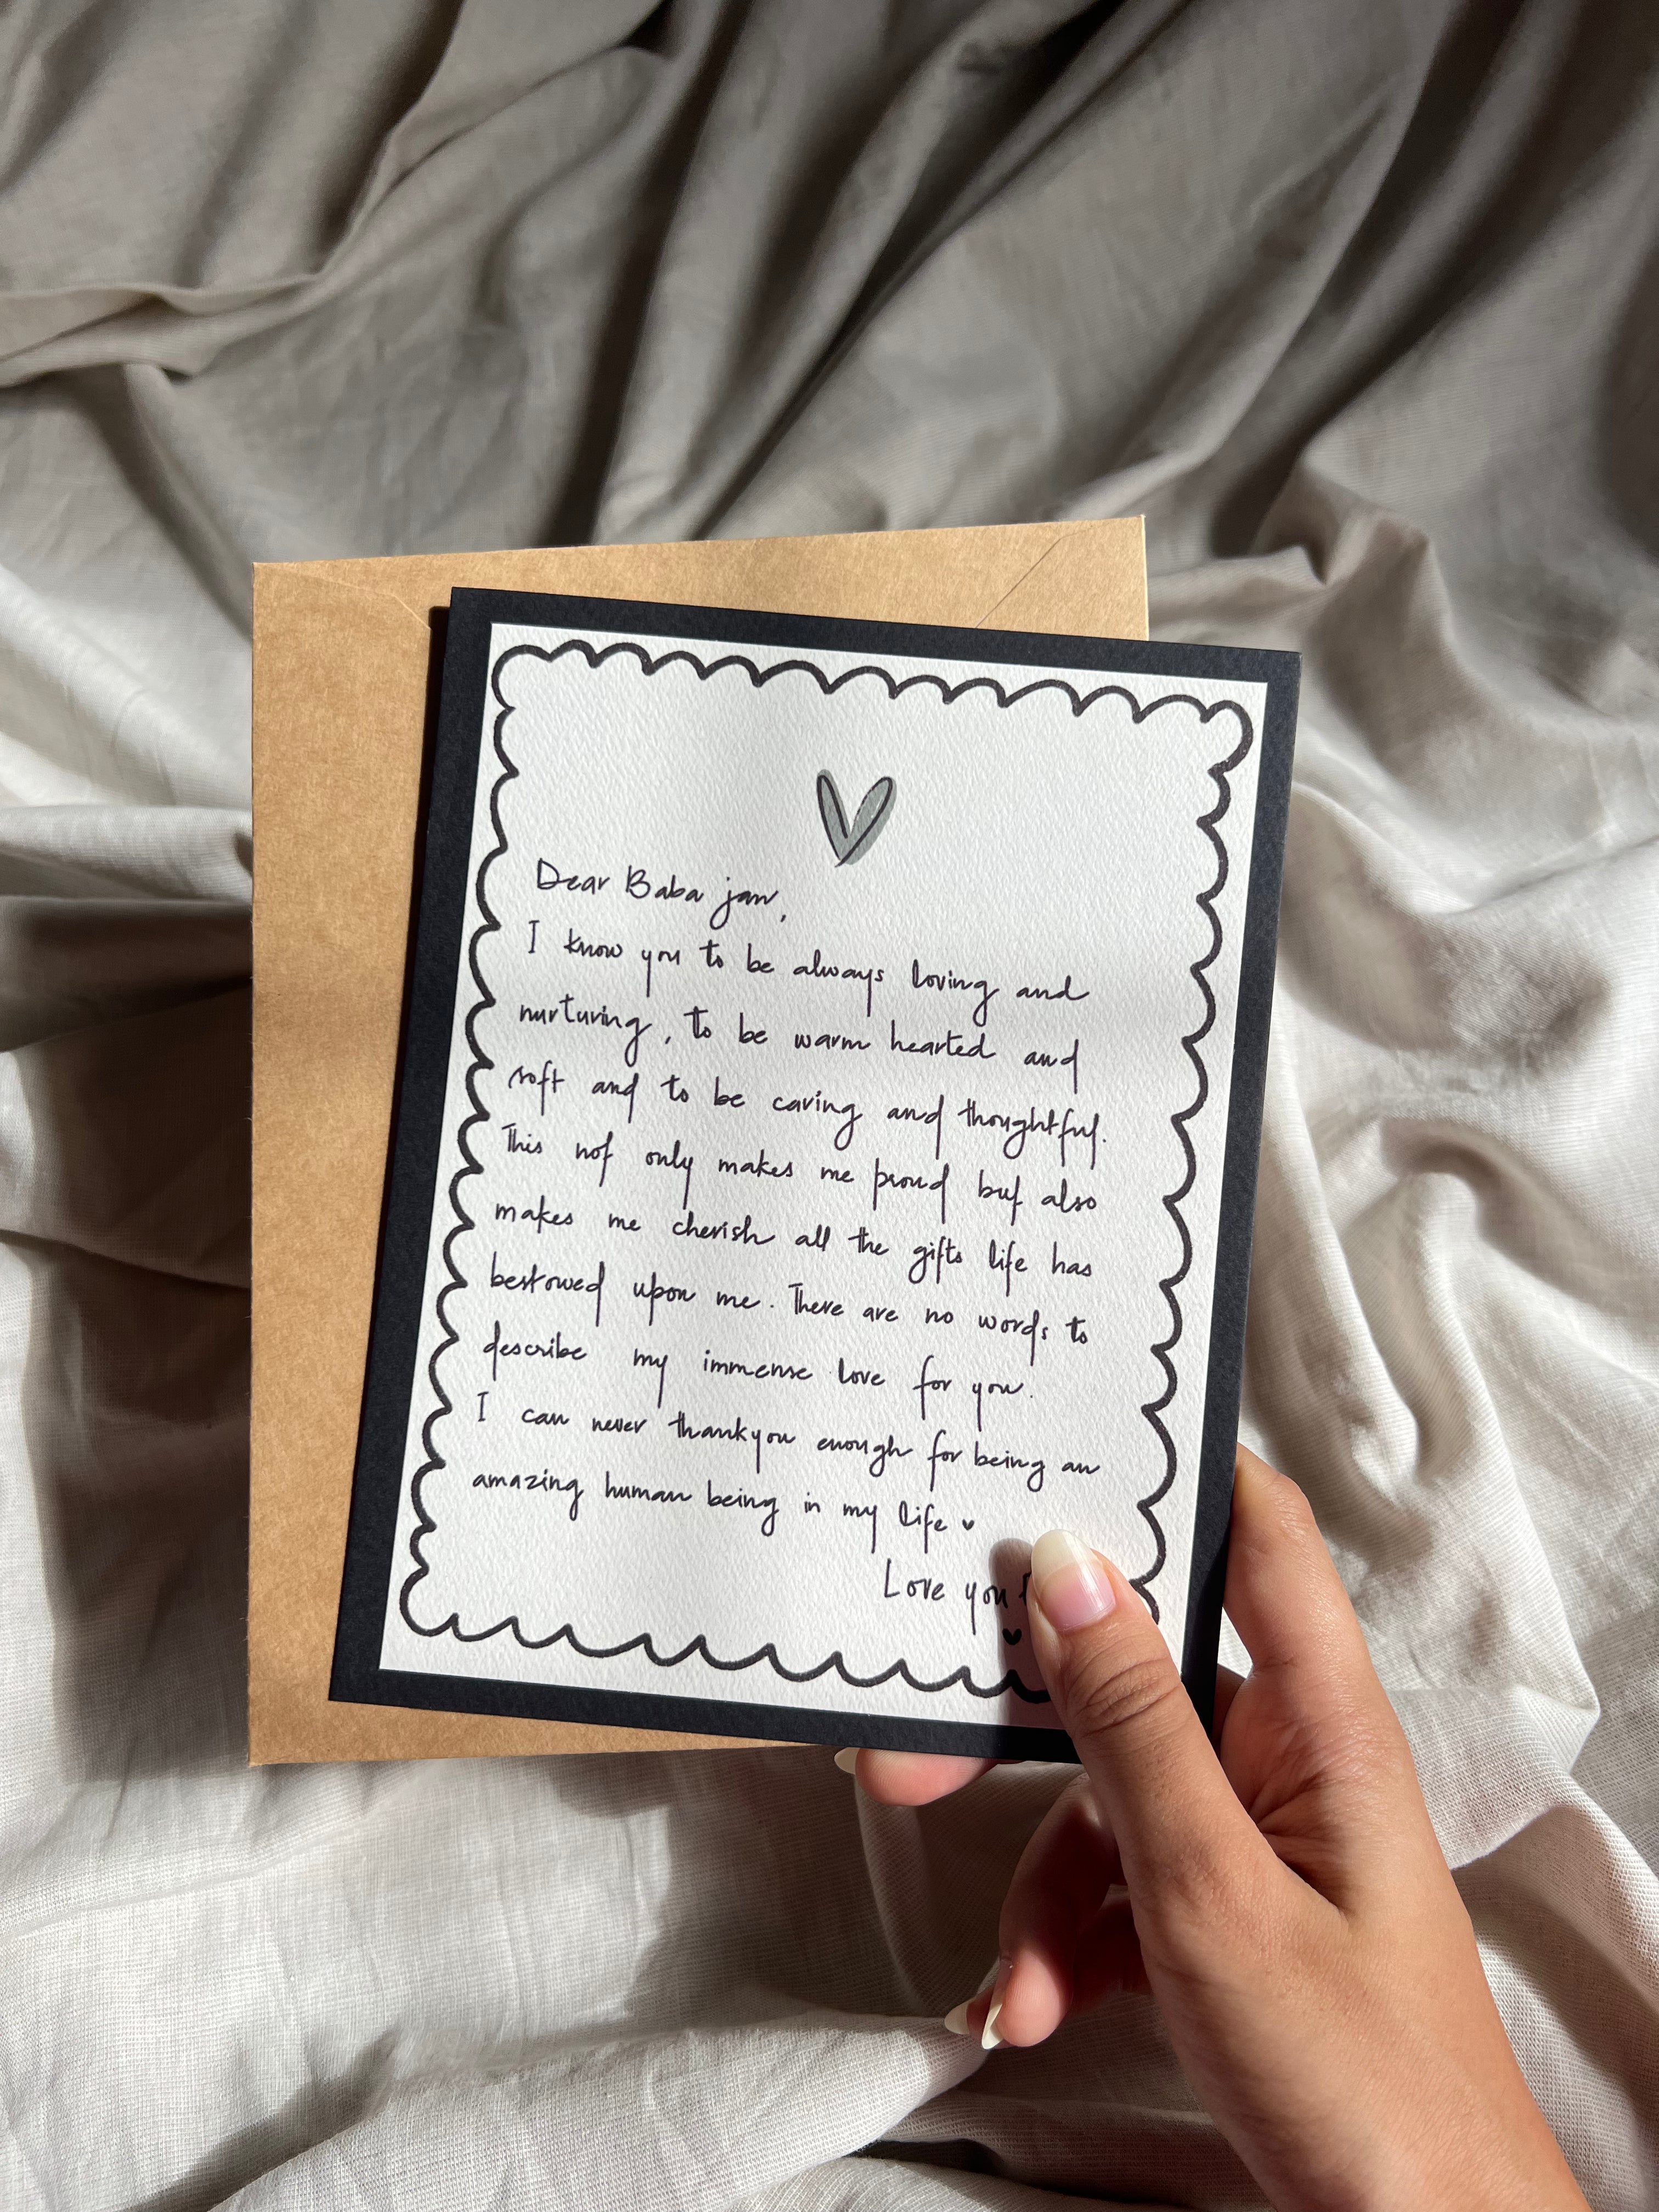 Dear Baba jan,
I know you to be always loving and
nurturing, to be warm hearted and
soft and to be caring and thoughtful.
This not only makes me proud but also
makes me cherish all the gifts life has
bestowed upon me. There are no words to
describe my immense love for you.
I can never thankyou enough for being an
amazing human being in my life
Love you